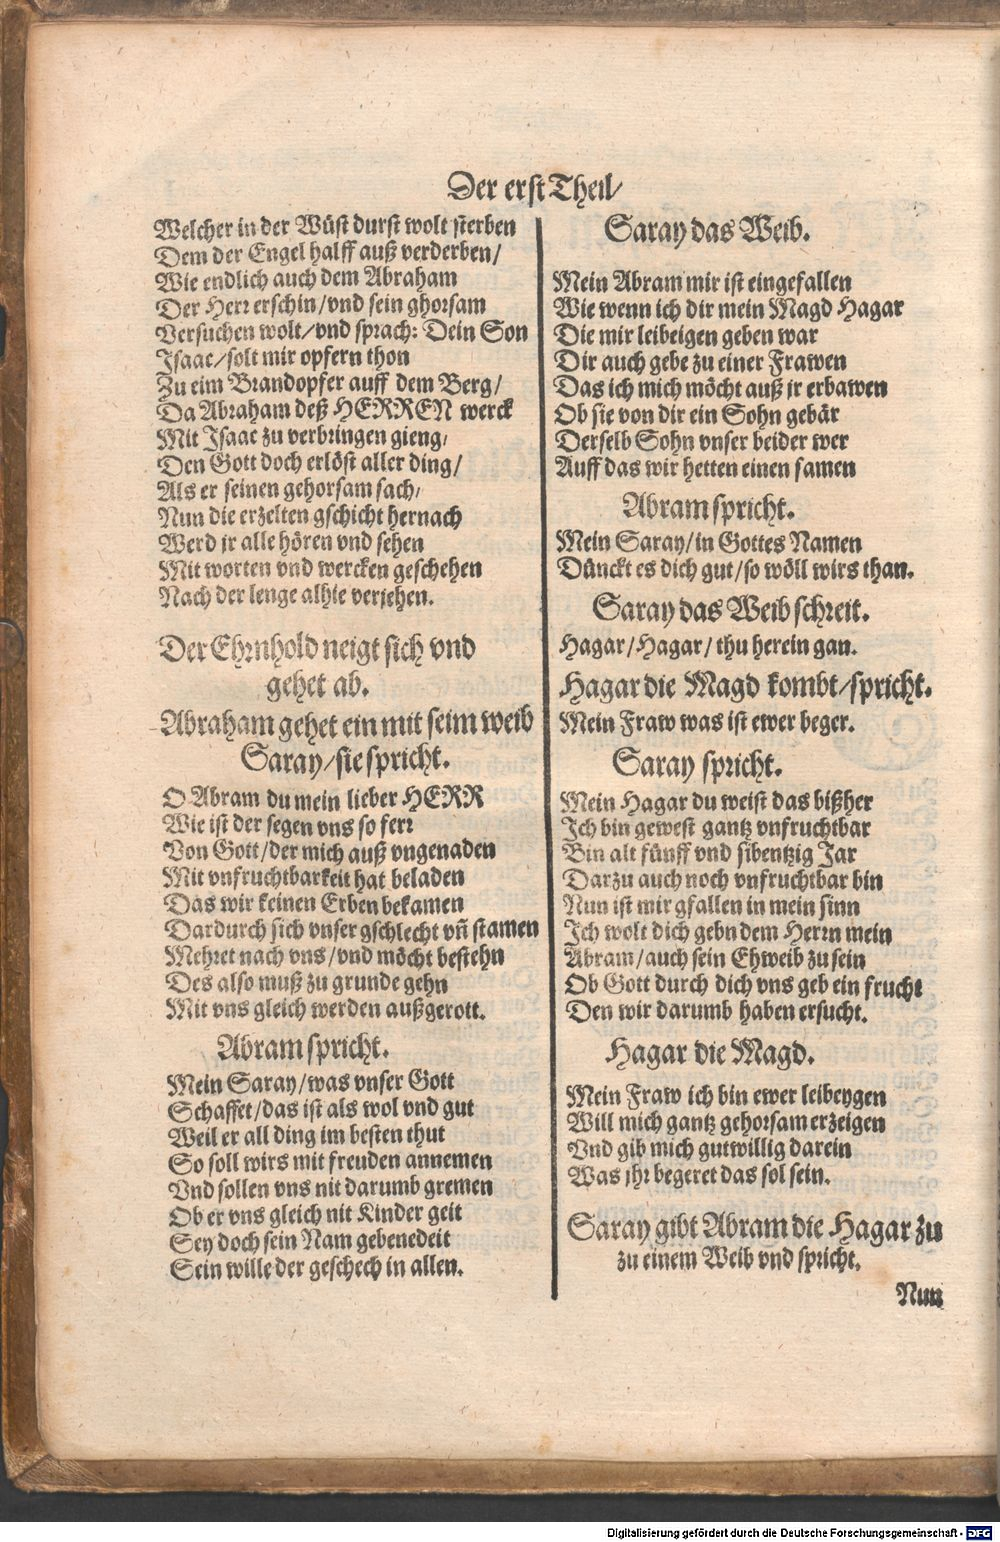 Der erst Theil/
Welcher in der Wüst durst wolt sterben
Dem der Engel halff auß verderben/
Wie endlich auch dem Abraham
Der Herr erschin/vnd sein ghorsam
Versuchen wolt/vnd sprach: Dein Son
Isaac/solt mir opfern thon
Zu eim Brandopfer auff dem Berg/
Da Abraham deß HERREN werck
Mit Isaac zu verbringen gieng/
Den Gott doch erlöst aller ding/
Als er seinen gehorsam sach/
Nun die erzelten gschicht hernach
Werd jr alle hören vnd sehen
Mit worten vnd wercken geschehen
Nach der lenge alhie verjehen.
Der Ehrnhold neigt sich vnd
gehet ab.
Abraham gehet ein mit seim weib
Saray/sie spricht.
O Abram du mein lieber HERR
Wie ist der segen vns so ferr
Von Gott/der mich auß vngenaden
Mit vnfruchtbarkeit hat beladen
Das wir keinen Erben bekamen
Dardurch sich vnser gschlecht vñ stamen
Mehret nach vns/vnd möcht bestehn
Des also muß zu grunde gehn
Mit vns gleich werden außgerott.
Abram spricht.
Mein Saray/was vnser Gott
Schaffet/das ist als wol vnd gut
Weil er all ding im besten thut
So soll wirs mit freuden annemen
Vnd sollen vns nit darumb gremen
Ob er vns gleich nit Kinder geit
Sey doch sein Nam gebenedeit
Sein wille der geschech in allen.
Saray das Weib.
Mein Abram mir ist eingefallen
Wie wenn ich dir mein Magd Hagar
Die mir leibeigen geben war
Dir auch gebe zu einer Frawen
Das ich mich möcht auß jr erbawen
Ob sie von dir ein Sohn gebär
Derselb Sohn vnser beider wer
Auff das wir hetten einen samen
Abram spricht.
Mein Saray/in Gottes Namen
Dünckt es dich gut/so wöll wirs than.
Saray das Weib schreit.
Hagar/Hagar/thu herein gan.
Hagar die Magd kombt/spricht.
Mein Fraw was ist ewer beger.
Saray spricht.
Mein Hagar du weist das bißher
Ich bin gewest gantz vnfruchtbar
Bin alt fünff vnd sibentzig Jar
Darzu auch noch vnfruchtbar bin
Nun ist mir gfallen in mein sinn
Ich wolt dich gebn dem Herrn mein
Abram/auch sein Ehweib zu sein
Ob Gott durch dich vns geb ein frucht
Den wir darumb haben ersucht.
Hagar die Magd.
Mein Fraw ich bin ewer leibeygen
Will mich gantz gehorsam erzeigen
Vnd gib mich gutwillig darein
Was jhr begeret das sol sein.
Saray gibt Abram die Hagar zu
zu einem Weib vnd spricht.
Nun
Digitalisierung gefördert durch die Deutsche Forschungsgemeinschaft - DFG